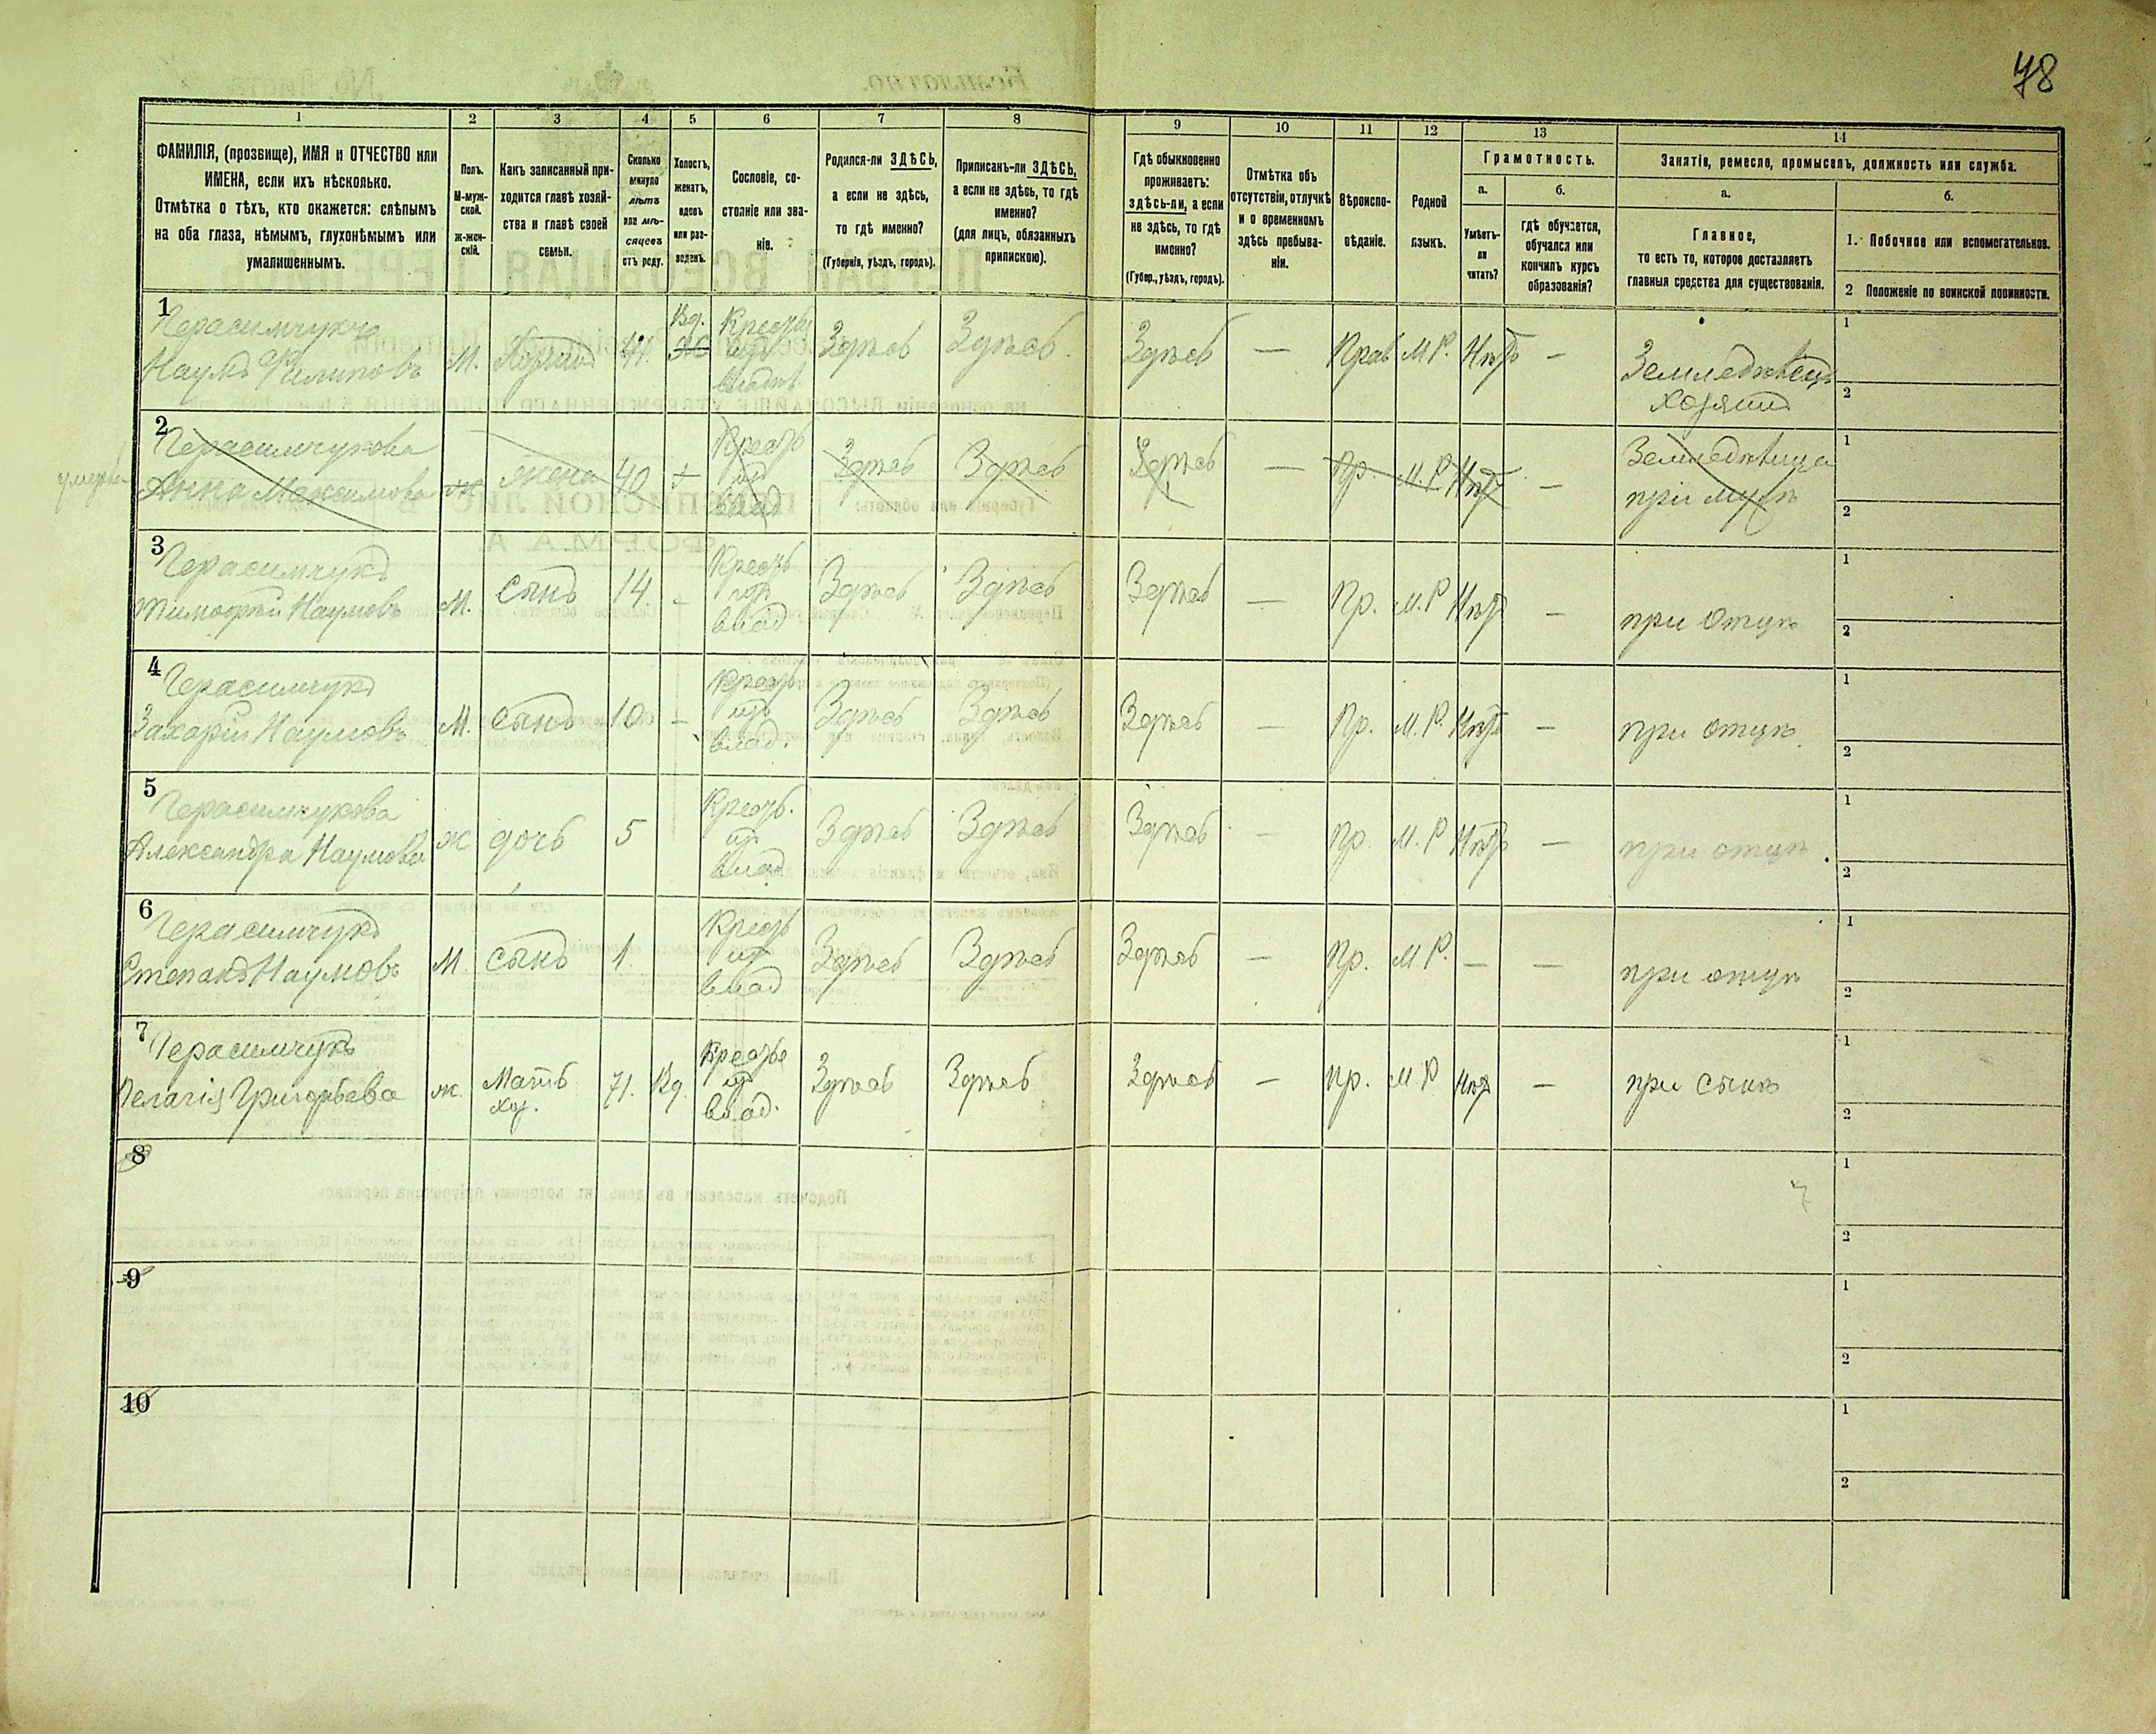 78
1
2
3
4
5
6
7
8
9
10
11
12
13
14
ФАМИЛІЯ, (прозвище), ИМЯ и ОТЧЕСТВО или
ИМЕНА, если ихъ нѣсколько.
Отмѣтка о тѣхъ, кто окажется: слѣпымъ
на оба глаза, нѣмымъ, глухонѣмымъ или
умалишеннымъ.
Полъ.
М-муж-
ской.
ж-жен-
скій.
Какъ записанный при-
ходится главѣ хозяй-
ства и главѣ своей
семьи.
Сколько
минуло
лѣтъ
или мѣ-
сяцевъ
отъ роду.
Холостъ,
женатъ,
вдовъ
или раз-
веденъ.
Сословіе, со-
стояніе или зва-
ніе.
Родился-ли ЗДѢСЬ,
а если не здѣсь,
то гдѣ именно?
(Губернія, уѣздъ, городъ).
Приписанъ-ли ЗДѢСЬ,
а если не здѣсь, то гдѣ
именно?
(для лицъ, обязанныхъ
припискою).
Гдѣ обыкновенно
проживаетъ:
здѣсь-ли, а если
не здѣсь, то гдѣ
именно?
(Губер., уѣздъ, городъ).
Отмѣтка объ
отсутствіи, отлучкѣ
и о временномъ
здѣсь пребыва-
ніи.
Вѣроиспо-
вѣданіе.
Родной
языкъ.
Грамотность.
а.
б.
Умѣетъ-
ли
читать?
гдѣ обучается,
обучался или
кончилъ курсъ
образованія?
Занятіе, ремесло, промыселъ, должность или служба.
а.
б.
Главное,
то есть то, которое доставляетъ
главныя средства для существованія.
1. Побочное или вспомогательное.
2 Положеніе по воинской повинности.
1
Герасимчукъ
Наумъ Филиповъ
М.
Хозяинъ
41.
Вд.
Ж
Крестьян
изъ
владѣл
Здѣсь
Здѣсь.
Здѣсь
—
Прав
М.Р.
Нѣтъ
—
Земледѣлецъ
хозяинъ
1
2
умерла
2
Герасимчукова
Анна Максимова
ж
жена
40
Кресть
из
влад
Здѣсь
Здѣсь
Здѣсь
—
Пр.
М.Р
Нѣтъ
—
Земледѣлица
при мужѣ
1
2
3
Герасимчукъ
Тимофѣй Наумовъ
М.
Сынъ
14
-
Кресть
изъ
влад
Здѣсь
Здѣсь
Здѣсь
—
Пр.
М.Р
Нѣтъ
—
при отцѣ
1
2
4
Герасимчукъ
Захарій Наумовъ
М.
Сынъ
10
-
Кресть
изъ
влад.
Здѣсь
Здѣсь
Здѣсь
—
Пр.
М.Р.
Нѣтъ
—
при отцѣ
1
2
5
Герасимчукова
Александра Наумова
Ж
дочь
5
Кресть.
из
влад
Здѣсь
Здѣсь
Здѣсь
—
Пр.
М.Р
Нѣтъ
—
при отцѣ
1
2
6
Герасимчукъ
Степанъ Наумовъ
М
сынъ
1.
Кресть
из
влад
Здѣсь
Здѣсь
Здѣсь
—
Пр.
М Р.
—
—
при отцѣ
1
2
7
Герасимчукъ
Пелагія Григорьева
ж.
Мать
хоз.
71.
Вд.
Крестья
из
влад.
Здѣсь
Здѣсь
Здѣсь
—
Пр.
М Р
Нѣт
—
при сынѣ
1
2
8
1
7
2
9
1
2
10
1
2